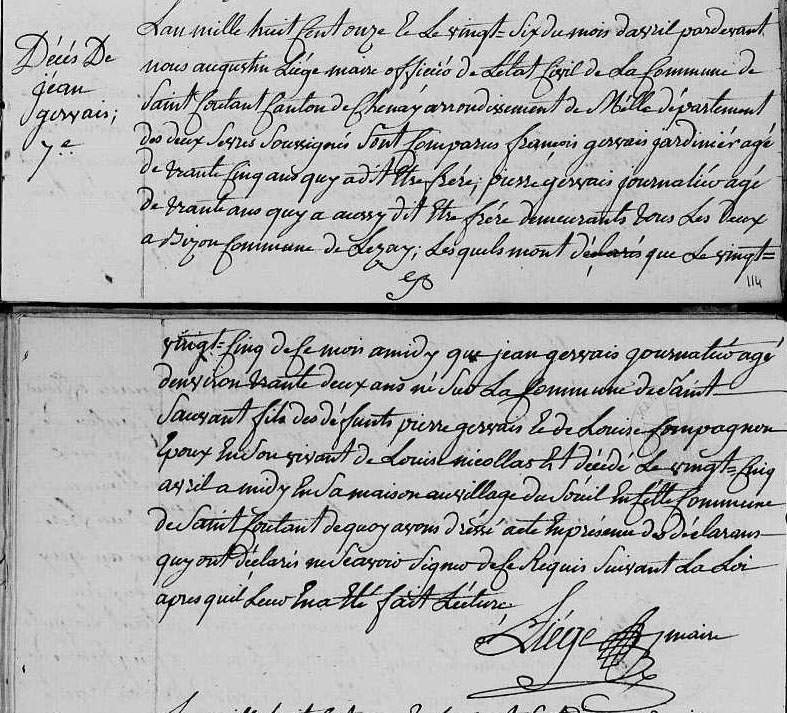 Décés De
jean
gervais;
7.e
Lan mille huit Cent onze & Le vingt=six du mois davril pardevant
nous augustin Liége maire officiéé de Létat Civil de La Commune de
Saint Coutant Canton de Chenay arrondissement de Mélle département
des deux Sevres Soussignés Sont Comparus françois gervais jardiniér agé
de trante Cinq ans quy a dit Etre frére; pierre gervais journalié agé
de trante ans quy a aussy dit Etre frére demeurants tous Les deux
a Commune de Lezay; Lesquels mont déclarés que Le vingt=
114
vingt=Cinq de Ce mois a midy que jean gervais journalié agé
denviron trante deux ans né Sur La Commune de Saint
Sauvant fils des défunts pierre gervais & de Louise Compagnon
Epoux En Son vivant de Louise nicollas Est décédé Le vingt=Cinq
avril a midy En Sa maison au village du En Cette Commune
de Saint Coutant de quoy avons dréssé acte En présence des déclarans
quy ont déclarés ne Scavoir Signer de Ce Requis Suivant La Loi
apres quil Leur En a Eté fait Lécture.
Liége maire